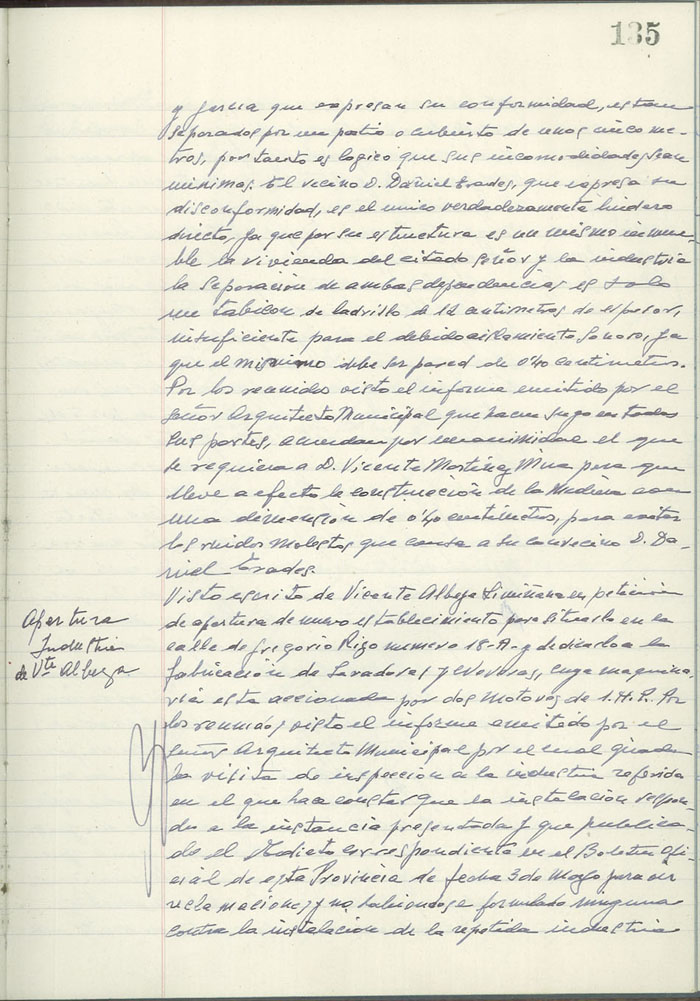 135
y García que expresan su conformidad, estan
separados por un patio o cubierto de unos cinco me-
tros, por tanto es logico que sus incomodidades sean
minimas. El vecino D. Daniel Prades, que expresa su
disconformidad, es el unico verdaderamente lindero
directo, ya que por su estructura es un mismo inmue-
ble la vivienda del citado señor y la industria
la separación de ambas dependencias es solo
un tabicon de ladrillo de 12 centimetros de espesor,
insuficiente para el debido aislamiento sonoro, ya
que el mismo debe ser pared de 0'40 centimetros.
Por los reunidos visto el informe emitido por el
señor Arquitecto Municipal que hacen suyo en todas
sus partes, acuerdan por unanimidad el que
se requiera a D. Vicente Martinez Mira para que
lleve a efecto la construcción de la medianera con
una dimensión de 0'40 centimetros, para evitar
los ruidos molestos que causa a su convecino D. Da-
niel Prades.
Apertura
Industria
de Vte Albeza
Visto escrito de Vicente Albeza Limiñana en petición
de apertura de nuevo establecimiento para situarlo en la
calle de Gregorio Rizo numero 18-A- y dedicarlo a la
fabricación de , cuya maquina-
ria esta accionada por dos motores de 1.H.P. Por
los reunidos visto el informe emitido por el
señor Arquitecto Municipal por el cual girada
la visita de inspeccion a la industria referida
en el que hace constar que la instalación respon-
de a la instancia presentada y que publica-
do el Edicto correspondiente en el Boletin Ofi-
cial de esta Provincia de fecha 3 de Mayo para oir
reclamaciones y no habiendose formulado ninguna
contra la instalación de la repetida industria